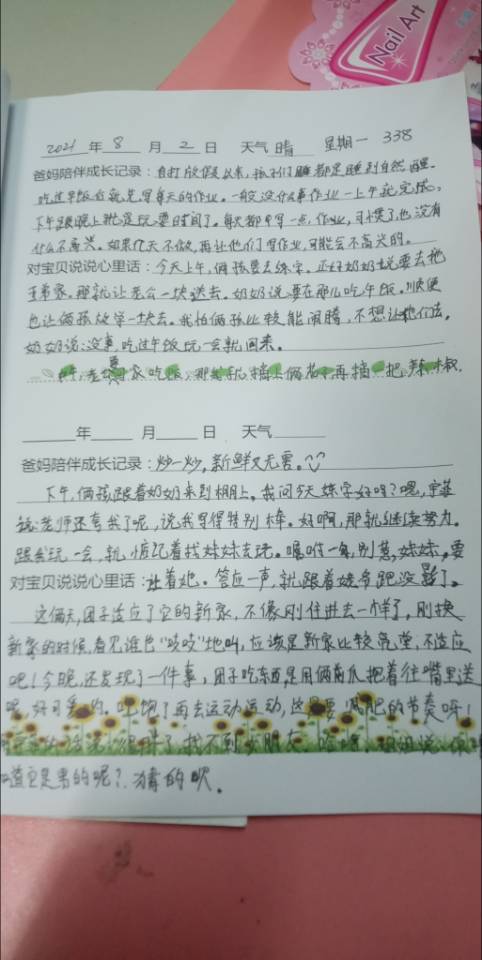 Nail Art
2021年 8 月 2 日 天气 晴 星期一 338
爸妈陪伴成长记录：自打放假以来，孩子们睡都是睡到自然醒。
吃过早饭后就先写每天的作业。一般没什么事作业一上午就完成，
下午跟晚上就是玩耍时间了。每天都写一点作业，习惯了也没有
什么不高兴。如果几天不做，再让他们写作业，可能会不高兴的。
对宝贝说说心里话：今天上午，俩孩要去练字，正好奶奶说要去
家，那就让老公一块送去。奶奶说要在那儿吃午饭，顺便
也让俩孩放学一块去。我怕俩孩比较能闹腾，不想让他们去，
奶奶说：没事，吃过午饭玩一会就回来。
家吃饭，那我就摘俩茄子再摘一把辣椒，
年 月 日 天气
爸妈陪伴成长记录：炒一炒，新鲜又无害。
下午，俩孩跟着奶奶来到棚上。我问今天练字好吗？嗯，
老师还夸我了呢，说我写得特别棒。好啊，那就继续努力。
跟我玩一会，就惦记着找妹妹去玩。嘱咐一句，别惹妹妹，要
对宝贝说说心里话：让着她。答应一声，就跟着爷爷跑没影了。
这俩天，团子适应了它的新家，不像刚住进去一样了，刚换
新家的时候，看见谁也“吱吱”地叫，应该是新家比较宽堂，不适应
吧！今晚，还发现了一件事，团子吃东西是用俩前爪把着往嘴里送
呢，好可爱的。吃饱了再去运动运动，这是要减肥的节奏呀！
道它是男的呢？猜的呗。